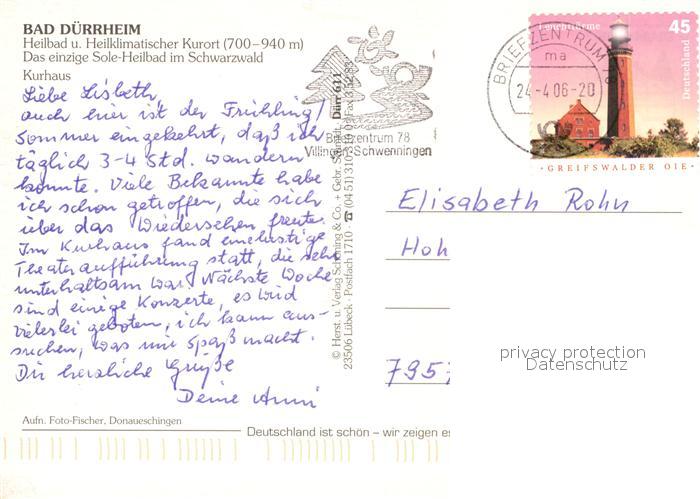 BAD DÜRRHEIM
Heilbad u. Heilklimatischer Kurort (700–940 m)
Das einzige Sole-Heilbad im Schwarzwald
Kurhaus
Liebe Lisbeth,
auch hier ist der Frühling/
Sommer eingekehrt, daß ich
täglich 3-4 Std. wandern
konnte. Viele Bekannte habe
ich schon getroffen, die sich
über das Wiedersehen freute.
Im Kurhaus fand eine lustige
Theateraufführung statt, die sehr
unterhaltsam war. Nächste Woche
sind einige Konzerte, es wird
vielerlei geboten, ich kann aus-
suchen, was mir Spaß macht.
Dir herzliche Grüße
Deine Anni
Aufn. Foto-Fischer, Donaueschingen
Deutschland ist schön – wir zeigen es
© Herst. u. Verlag Schöning & Co. + Gebr.
23506 Lübeck · Postfach 1710 · ☎ (0451) 310
Dürr 611
Briefzentrum 78
Villingen-Schwenningen
BRIEFZENTRUM 78
ma
24-4.06-20
Leuchttürme
45
Deutschland
· GREIFSWALDER OIE ·
Elisabeth Rohn
Hoh
795
privacy protection
Datenschutz